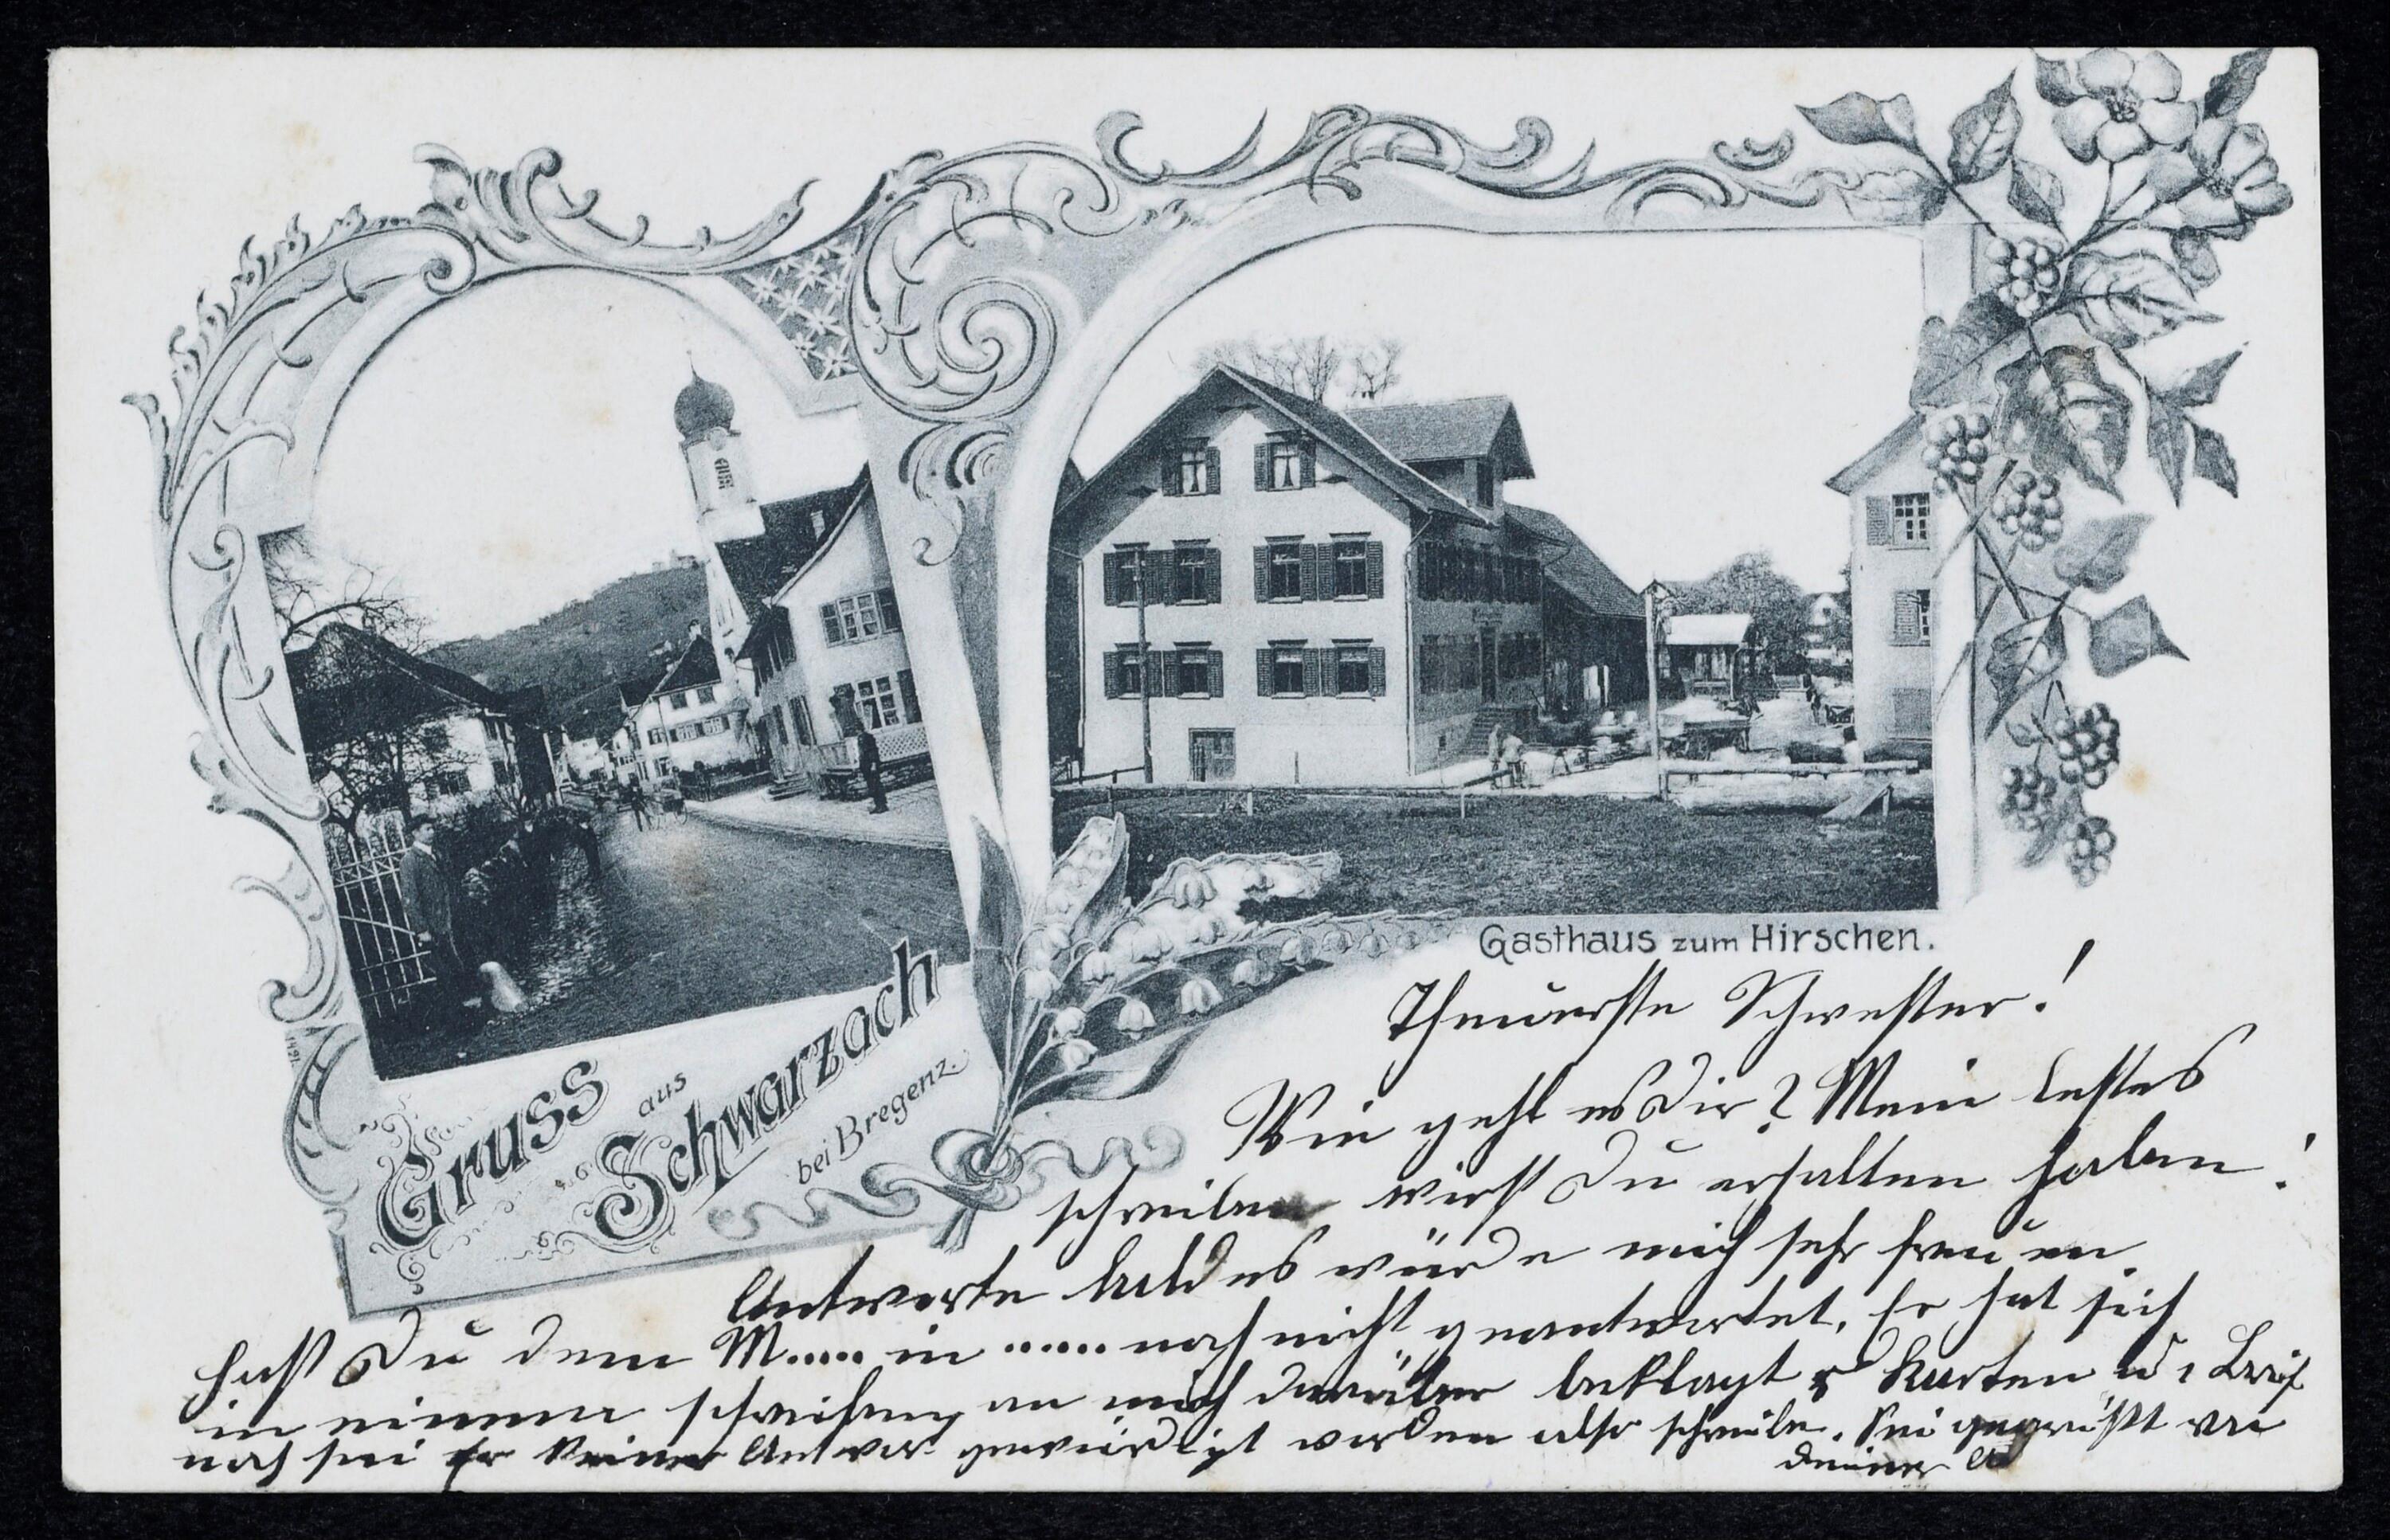 Gruss aus
Schwarzach
bei Bregenz.
1421
Gasthaus zum Hirschen.
Theuerste Schwester!
Wie geht es Dir? Mein lestes
schreiben wirst Du erhalten haben!
Antworte bald es würde mich sehr freuen.
Hast Du dem M..... in ...... noch nicht geantwortet. Er hat sich
in einem schreiben an mich darüber beklagt Karten u Brief
noch sei Er keiner Antwor. gewürdigt worden also schreibe. Sei gegrüßt von
deiner